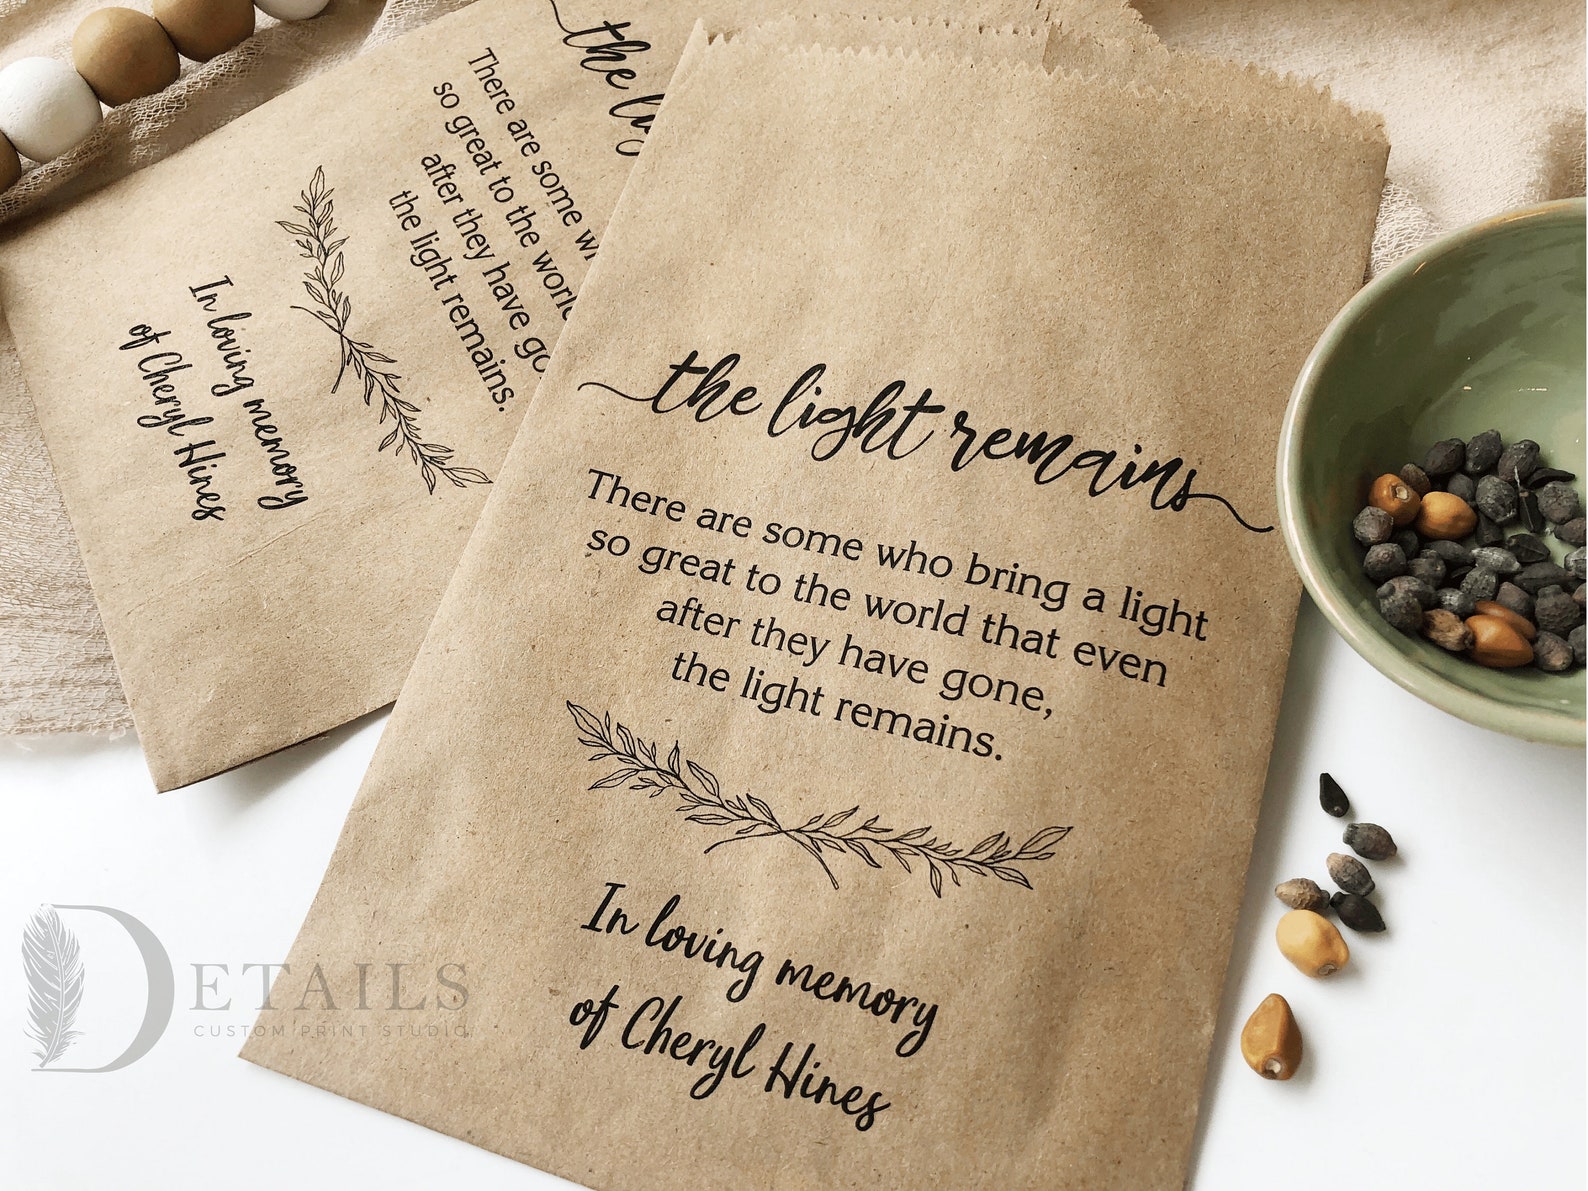 the light remains
There are some who bring a light
so great to the world that even
after they have gone,
the light remains.
In loving memory
of Cheryl Hines
the lig
There are some w
so great to the world
after they have go
the light remains.
In loving memory
of Cheryl Hines
DETAILS
CUSTOM PRINT STUDIO